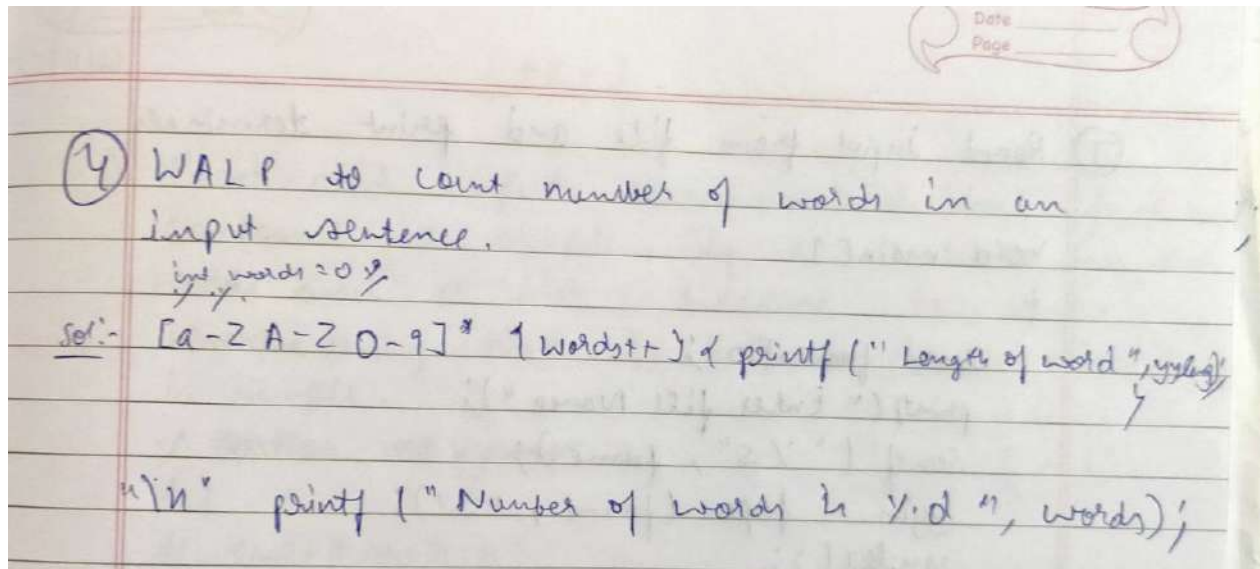 Date
Page
4 WALP to count number of words in an
input sentence.
int words = 0 %
% %
Sol:- [a-z A-Z 0-9]* {words++} { printf (" Length of word ", yyleng);
}
"\n" printf (" Number of words is %d ", words);